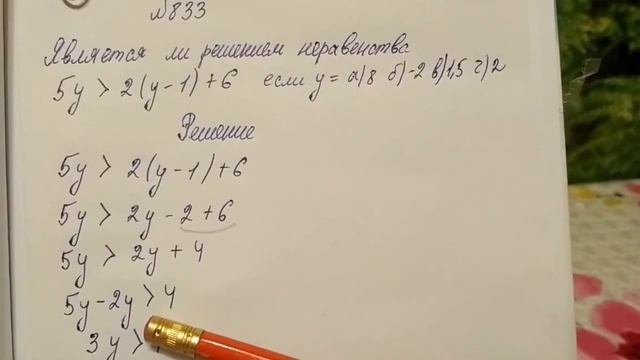 №833
Является ли решением неравенства
5y > 2(y-1)+6 если y = а) 8 б) -2 в) 1,5 г) 2
Решение
5y > 2(y-1)+6
5y > 2y - 2 + 6
5y > 2y + 4
5y - 2y > 4
3y >